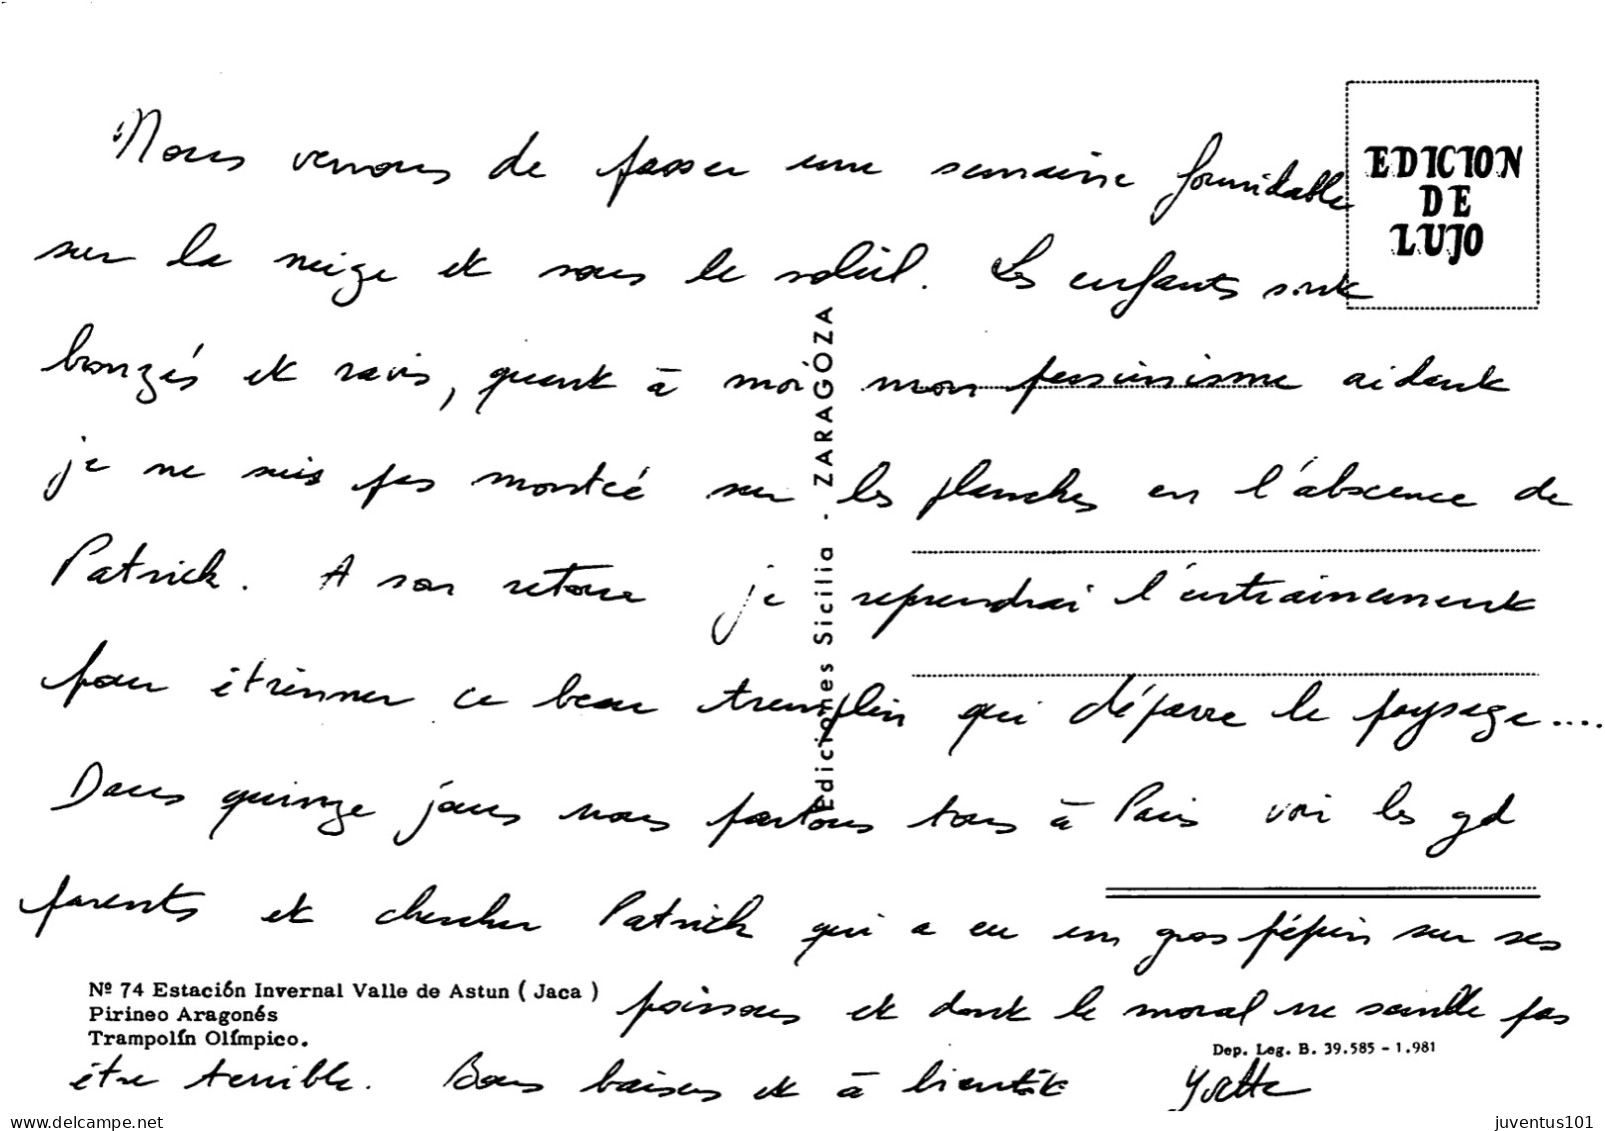 Nous venons de passer une semaine formidable
sur la neige et sous le soleil. Les enfants sont
bronzés et ravis, quant à moi mon pessimisme aidant
je ne suis pas montée sur les planches en l'abscence de
Patrick. A son retour je reprendrai l'entrainement
pour étrenner ce beau tremplin qui dépare le paysage....
Dans quinze jours nous partons tous à Paris voir les gd
parents et chercher Patrick qui a eu un gros pépin sur ses
poissons et dont le moral ne semble pas
être terrible. Bons baisers et à bientôt Yvette
EDICION
DE
LUJO
Ediciones Sicilia - ZARAGOZA
Nº 74 Estación Invernal Valle de Astun ( Jaca )
Pirineo Aragonés
Trampolín Olímpico.
Dep. Leg. B. 39.585 - 1.981
delcampe.net
juventus101